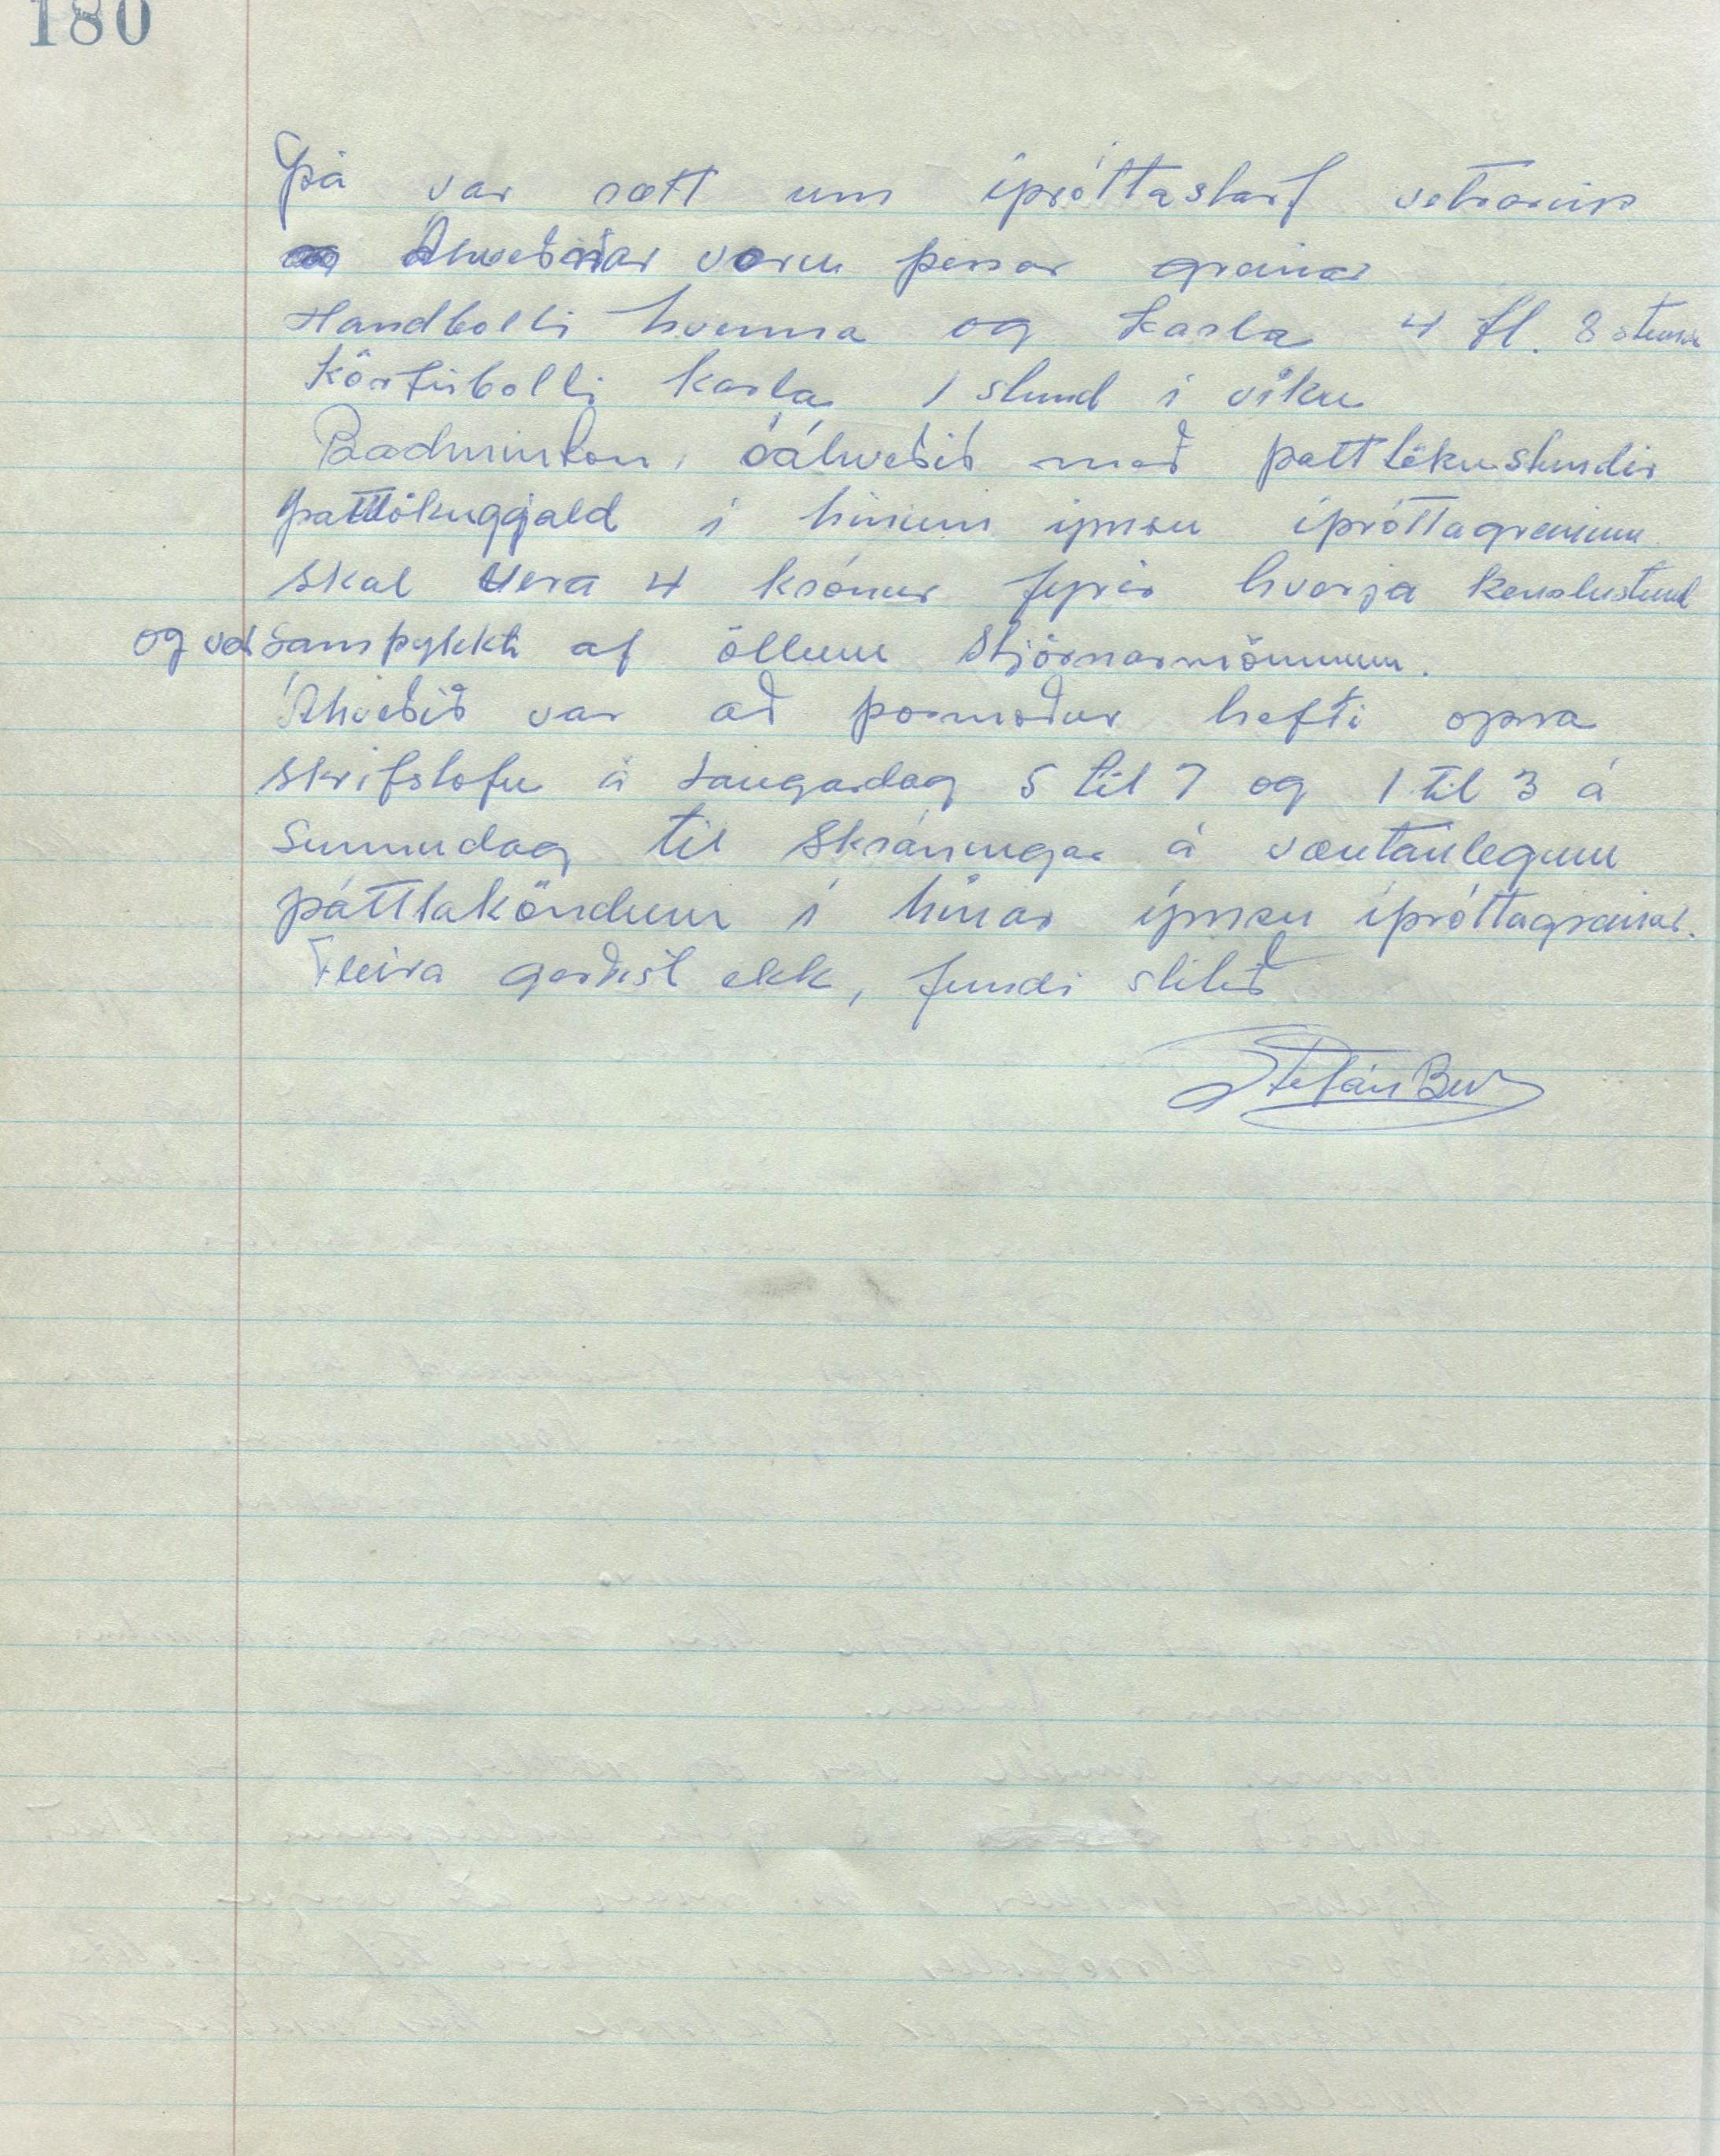 180
Þá var rætt um íþróttastarf vetrarins
Ákveðnar voru þessar greinar
Handbolti kvenna og karla 4 fl. 8 stundir
Körfubolti karla 1 stund í viku
Badminton, óákveðið með þáttökustundir
Þáttökuggjald í hinum ýmsu íþróttagreinum
skal vera 4 krónur fyrir hverja kenslustund
og var samþykkt af öllum stjórnarmönnum.
Ákveðið var að þormóður hefti opna
skrifstofu á Laugardag 5 til 7 og 1 til 3 á
Sunnudag til skráningar á væntanlegum
þátttaköndum í hinar ýmsu íþróttagreinar.
Fleira gerðist ekk, fundi slitið
Stefán Ben